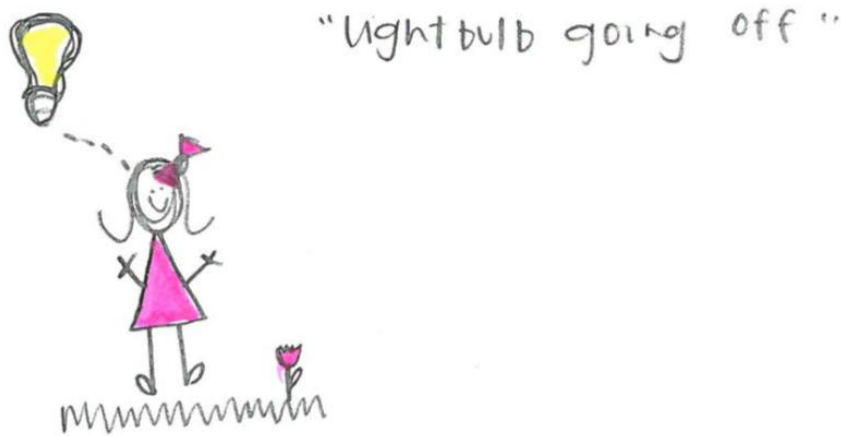 "Lightbulb going off"